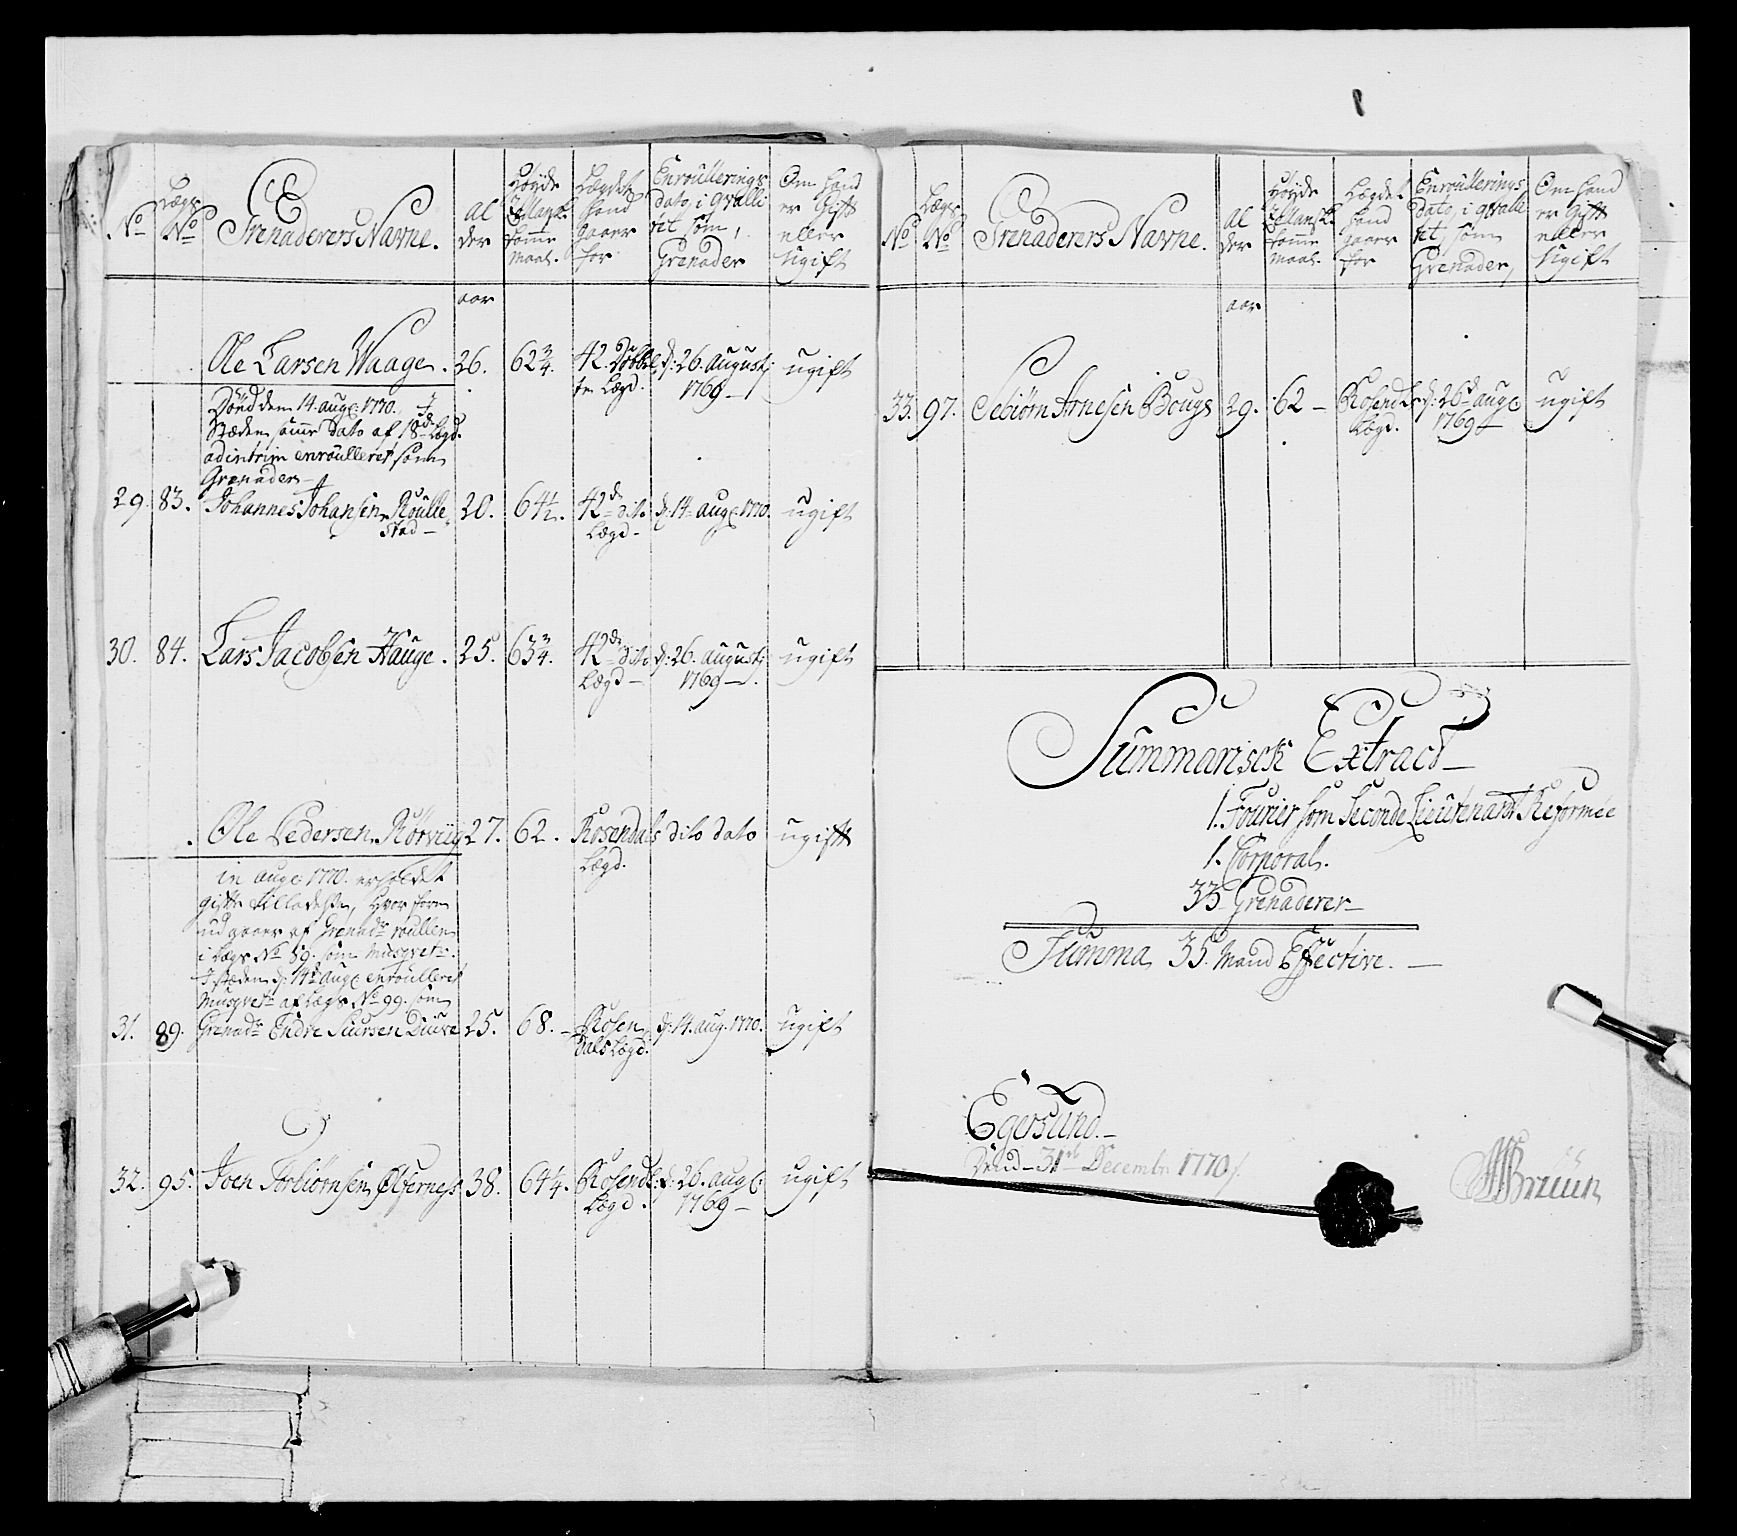 No
Lægs No
Grenaderers Navne.
Al der
Høyde i Mark. Somme maal.
Lægdet hand gaaer for
Enroullerings dato, i qvallitet som, Grenader
Om hand er Gift eller Ugift
aar
Ole Larsen Waage. 26. 62 3/4. 42. te Lægd. d: 26. Augustj 1769 ugift
Død den 14. aug: 1770. I
Stæden samme Dato af 18de Lægd.
ad intrim enroulleret som
Grenader
29. 83. Johannes Johansen Røulle
stad 20. 64 1/2. 42de dito Lægd d: 14 aug: 1770. ugift
30. 84. Lars Jacobsen Hauge. 25. 63 3/4. 42de dito Lægd d: 26. augustj 1769 ugift
Ole Pedersen Rørviig 27. 62. Rosendals Lægd. dito dato ugift
in aug: 1770. erholdet
gifte tilladelse, hvorfore
udgaaer af Grenadr roullen
i Lægs No 59. som Musqvetr.
I stæden d: 14de aug: enroulleret
Musqvetr af Lægs No 99. som
31. 89. Grenadr Endre Siursen Diure 25. 68. Rosendals Lægd. d: 14. aug. 1770. ugift
32. 95. Joen Torbiørnsen Ølferness 38. 64 1/4. Rosendls Lægd. d: 26. aug: 1769 ugift
No
Lægs No
Grenaderers Navne.
Al der
Høyde i Mansk. Somme maal.
Lægdet hand gaaer for
Enroullerings dato, i qvallitet, som Grenader,
Om hand er Gift eller Ugift
aar
33. 97. Sebiørn Arnesen Bougs 29. 62 Rosendls Lægd. d: 26de aug: 1769 ugift
Summarisck Extract
1. Fourier som Seconde Lieutenant Reformée
1. Corporal.
33 Grenaderer
Summa 35. Mand Effective.
Egersund
Dend 31te Decembr 1770.
Bruun